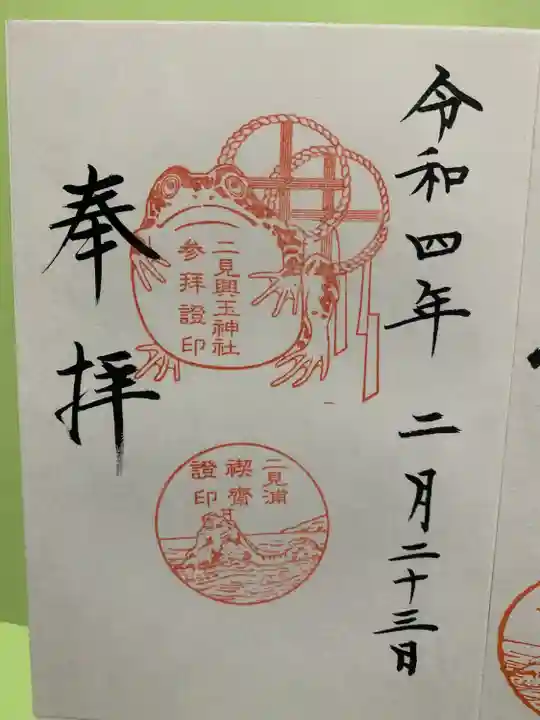 令和四年 二月二十三日
二見興玉神社
参拜證印
二見浦
禊齋
證印
奉拝